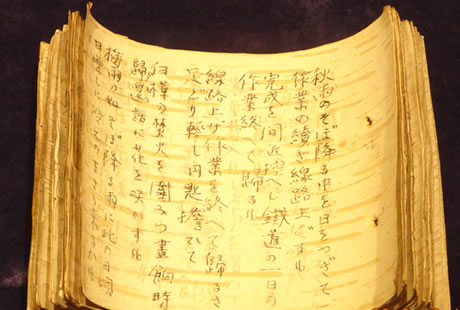 秋雨のそぼ降る中を日をつぎて
作業の續き線路上ばるも
完成を間近控へし鐵道の一日の
作業終へて歸るも
線路上 作業を終へて歸るさ
足どり輕し円匙擔ぎて
白樺の焚火を圍みつ晝餉時
歸還話に花を咲かすも
梅雨の如そぼ降る雨に此の日頃
日毎に冷えのまさり来るかも